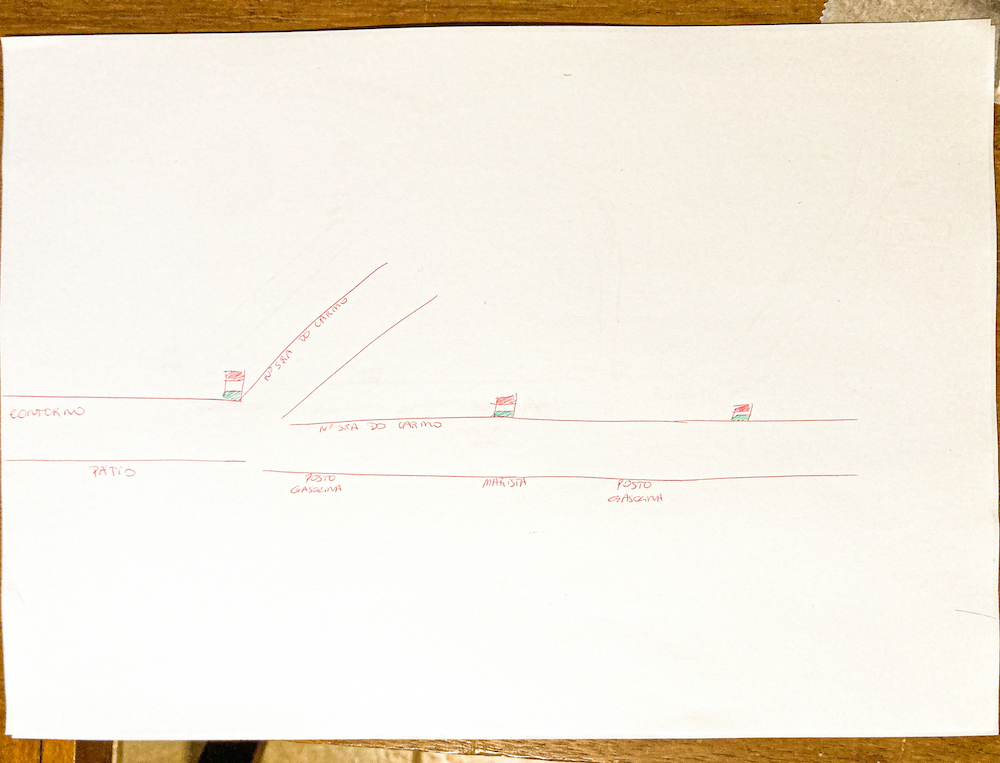 Nª SRA DO CARMO
CONTORNO
Nª SRA DO CARMO
PÁTIO
POSTO
GASOLINA
MARISTA
POSTO
GASOLINA